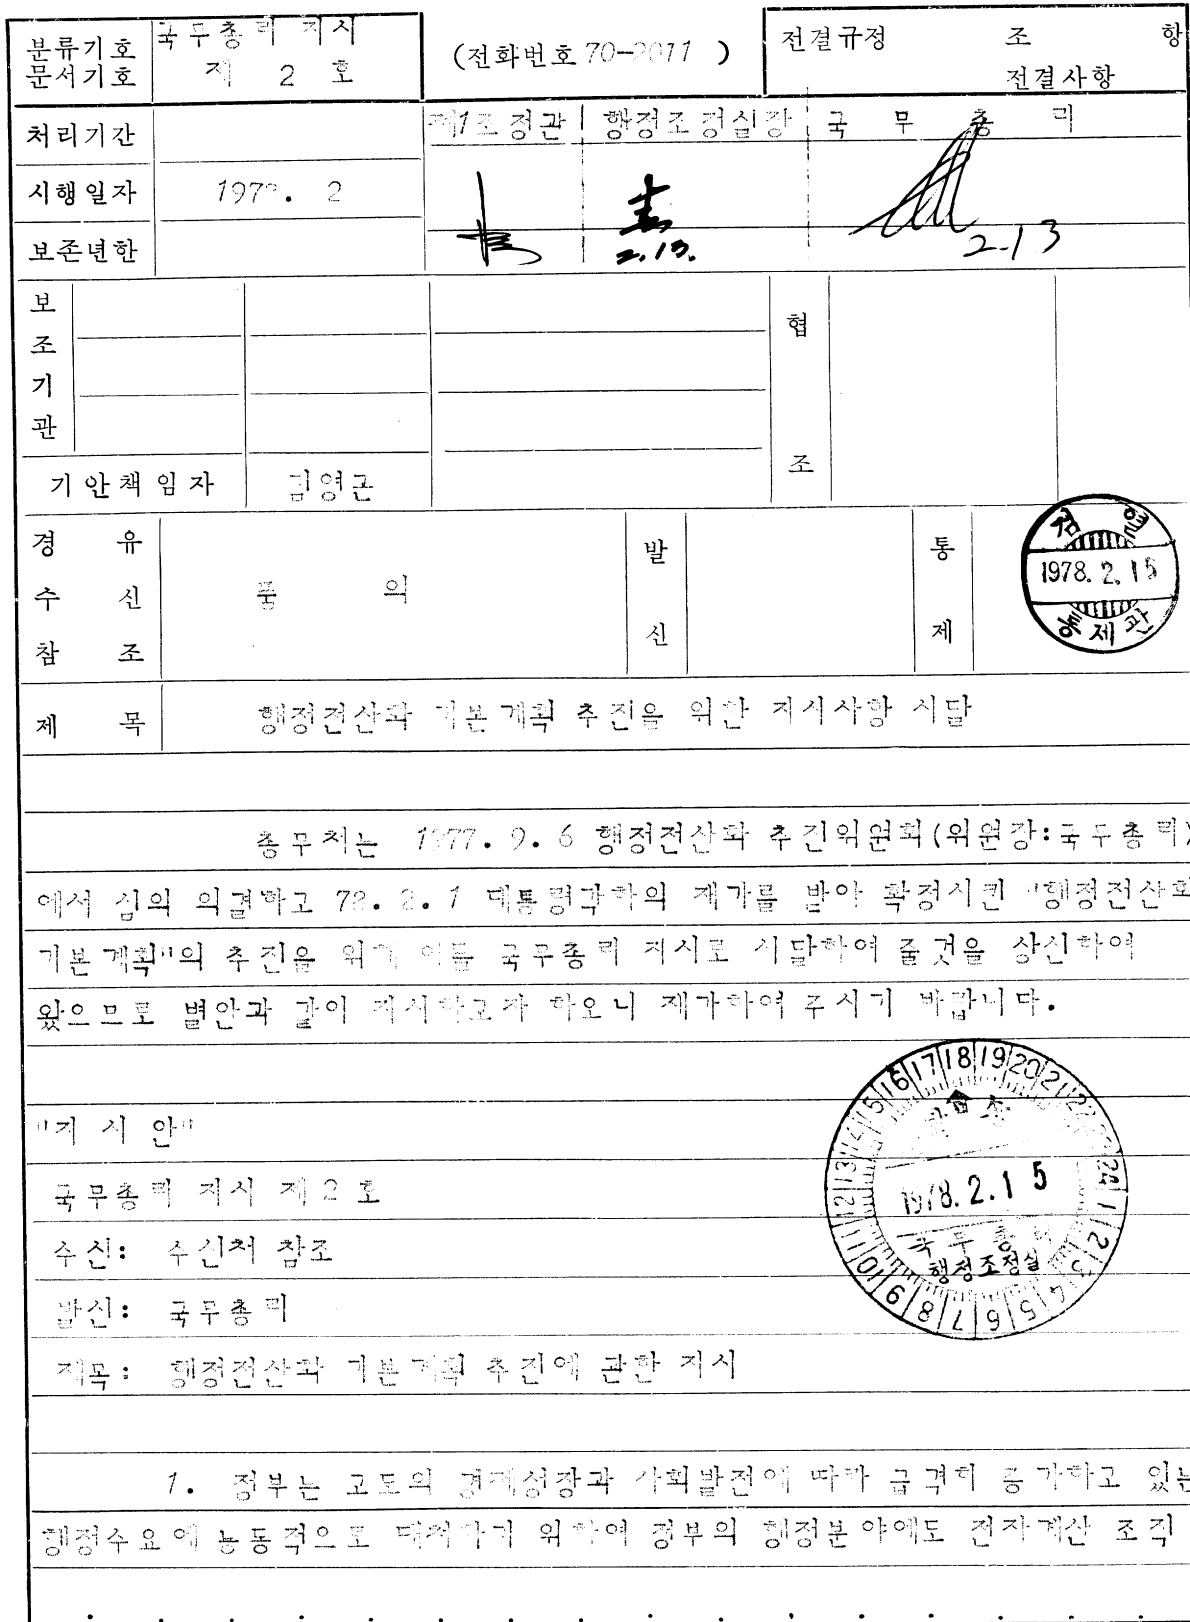 분류기호
문서기호
국무총리 지시
제 2 호
(전화번호 70-2011 )
전결규정 조 항
전결사항
처리기간
제1조정관 행정조정실장 국 무 총 리
시행일자
1978. 2
2.13.
2.13
보존년한
보조기관
협조
기안책임자
김영근
경 유
수 신
참 조
품 의
발신
통제
검열
1978. 2. 15
통제관
제 목
행정전산화 기본계획 추진을 위한 지시사항 시달
총무처는 1977. 9. 6 행정전산화 추진위원회(위원장:국무총리)
에서 심의 의결하고 78. 2. 1 대통령각하의 재가를 받아 확정시킨 "행정전산화
기본계획"의 추진을 위해 이를 국무총리 지시로 시달하여 줄것을 상신하여
왔으므로 별안과 같이 지시하고자 하오니 재가하여 주시기 바랍니다.
"지 시 안"
국무총리 지시 제 2 호
수신: 수신처 참조
발신: 국무총리
제목: 행정전산화 기본계획 추진에 관한 지시
1 2 3 4 5 6 7 8 9 10 11 12 13 14 15 16 17 18 19 20 21 22 23 24
1978. 2. 1 5
국무총리
행정조정실
1. 정부는 고도의 경제성장과 사회발전에 따라 급격히 증가하고 있는
행정수요에 능동적으로 대처하기 위하여 정부의 행정분야에도 전자계산 조직